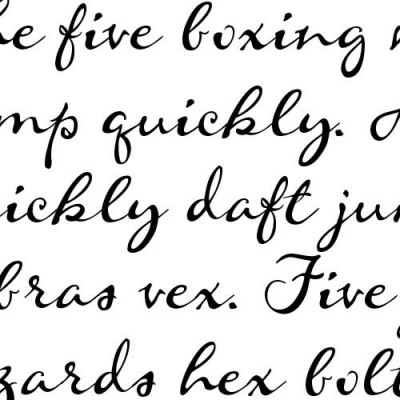 he five boxing
mp quickly.
ickly daft jum
bras vex. Five
zards hex bolt